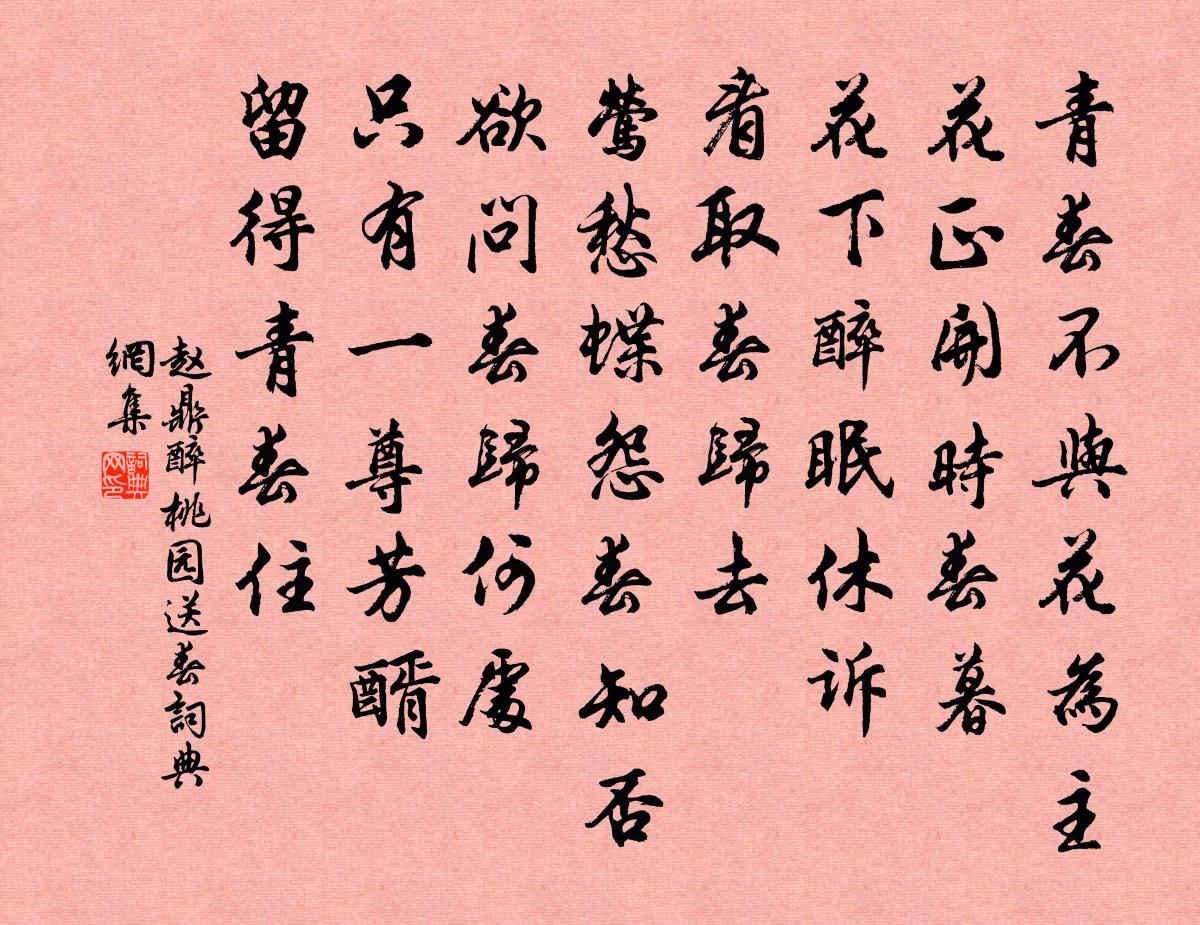 青春不與花為主
花正開時春暮
花下醉眠休訴
看取春歸去
鶯愁蝶怨春知否
欲問春歸何處
只有一尊芳醑
留得青春住
赵鼎醉桃园送春詞典
網集
詞典网印